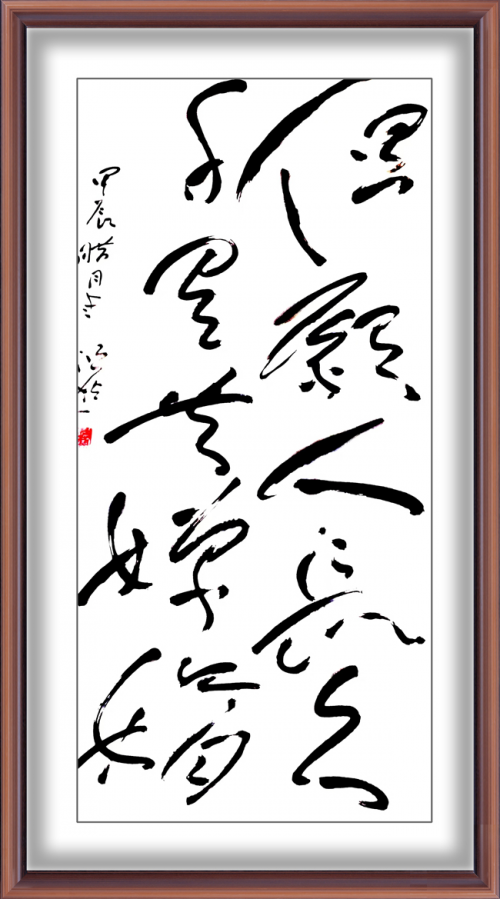 但願人長久
千里共嬋娟
甲辰腊月